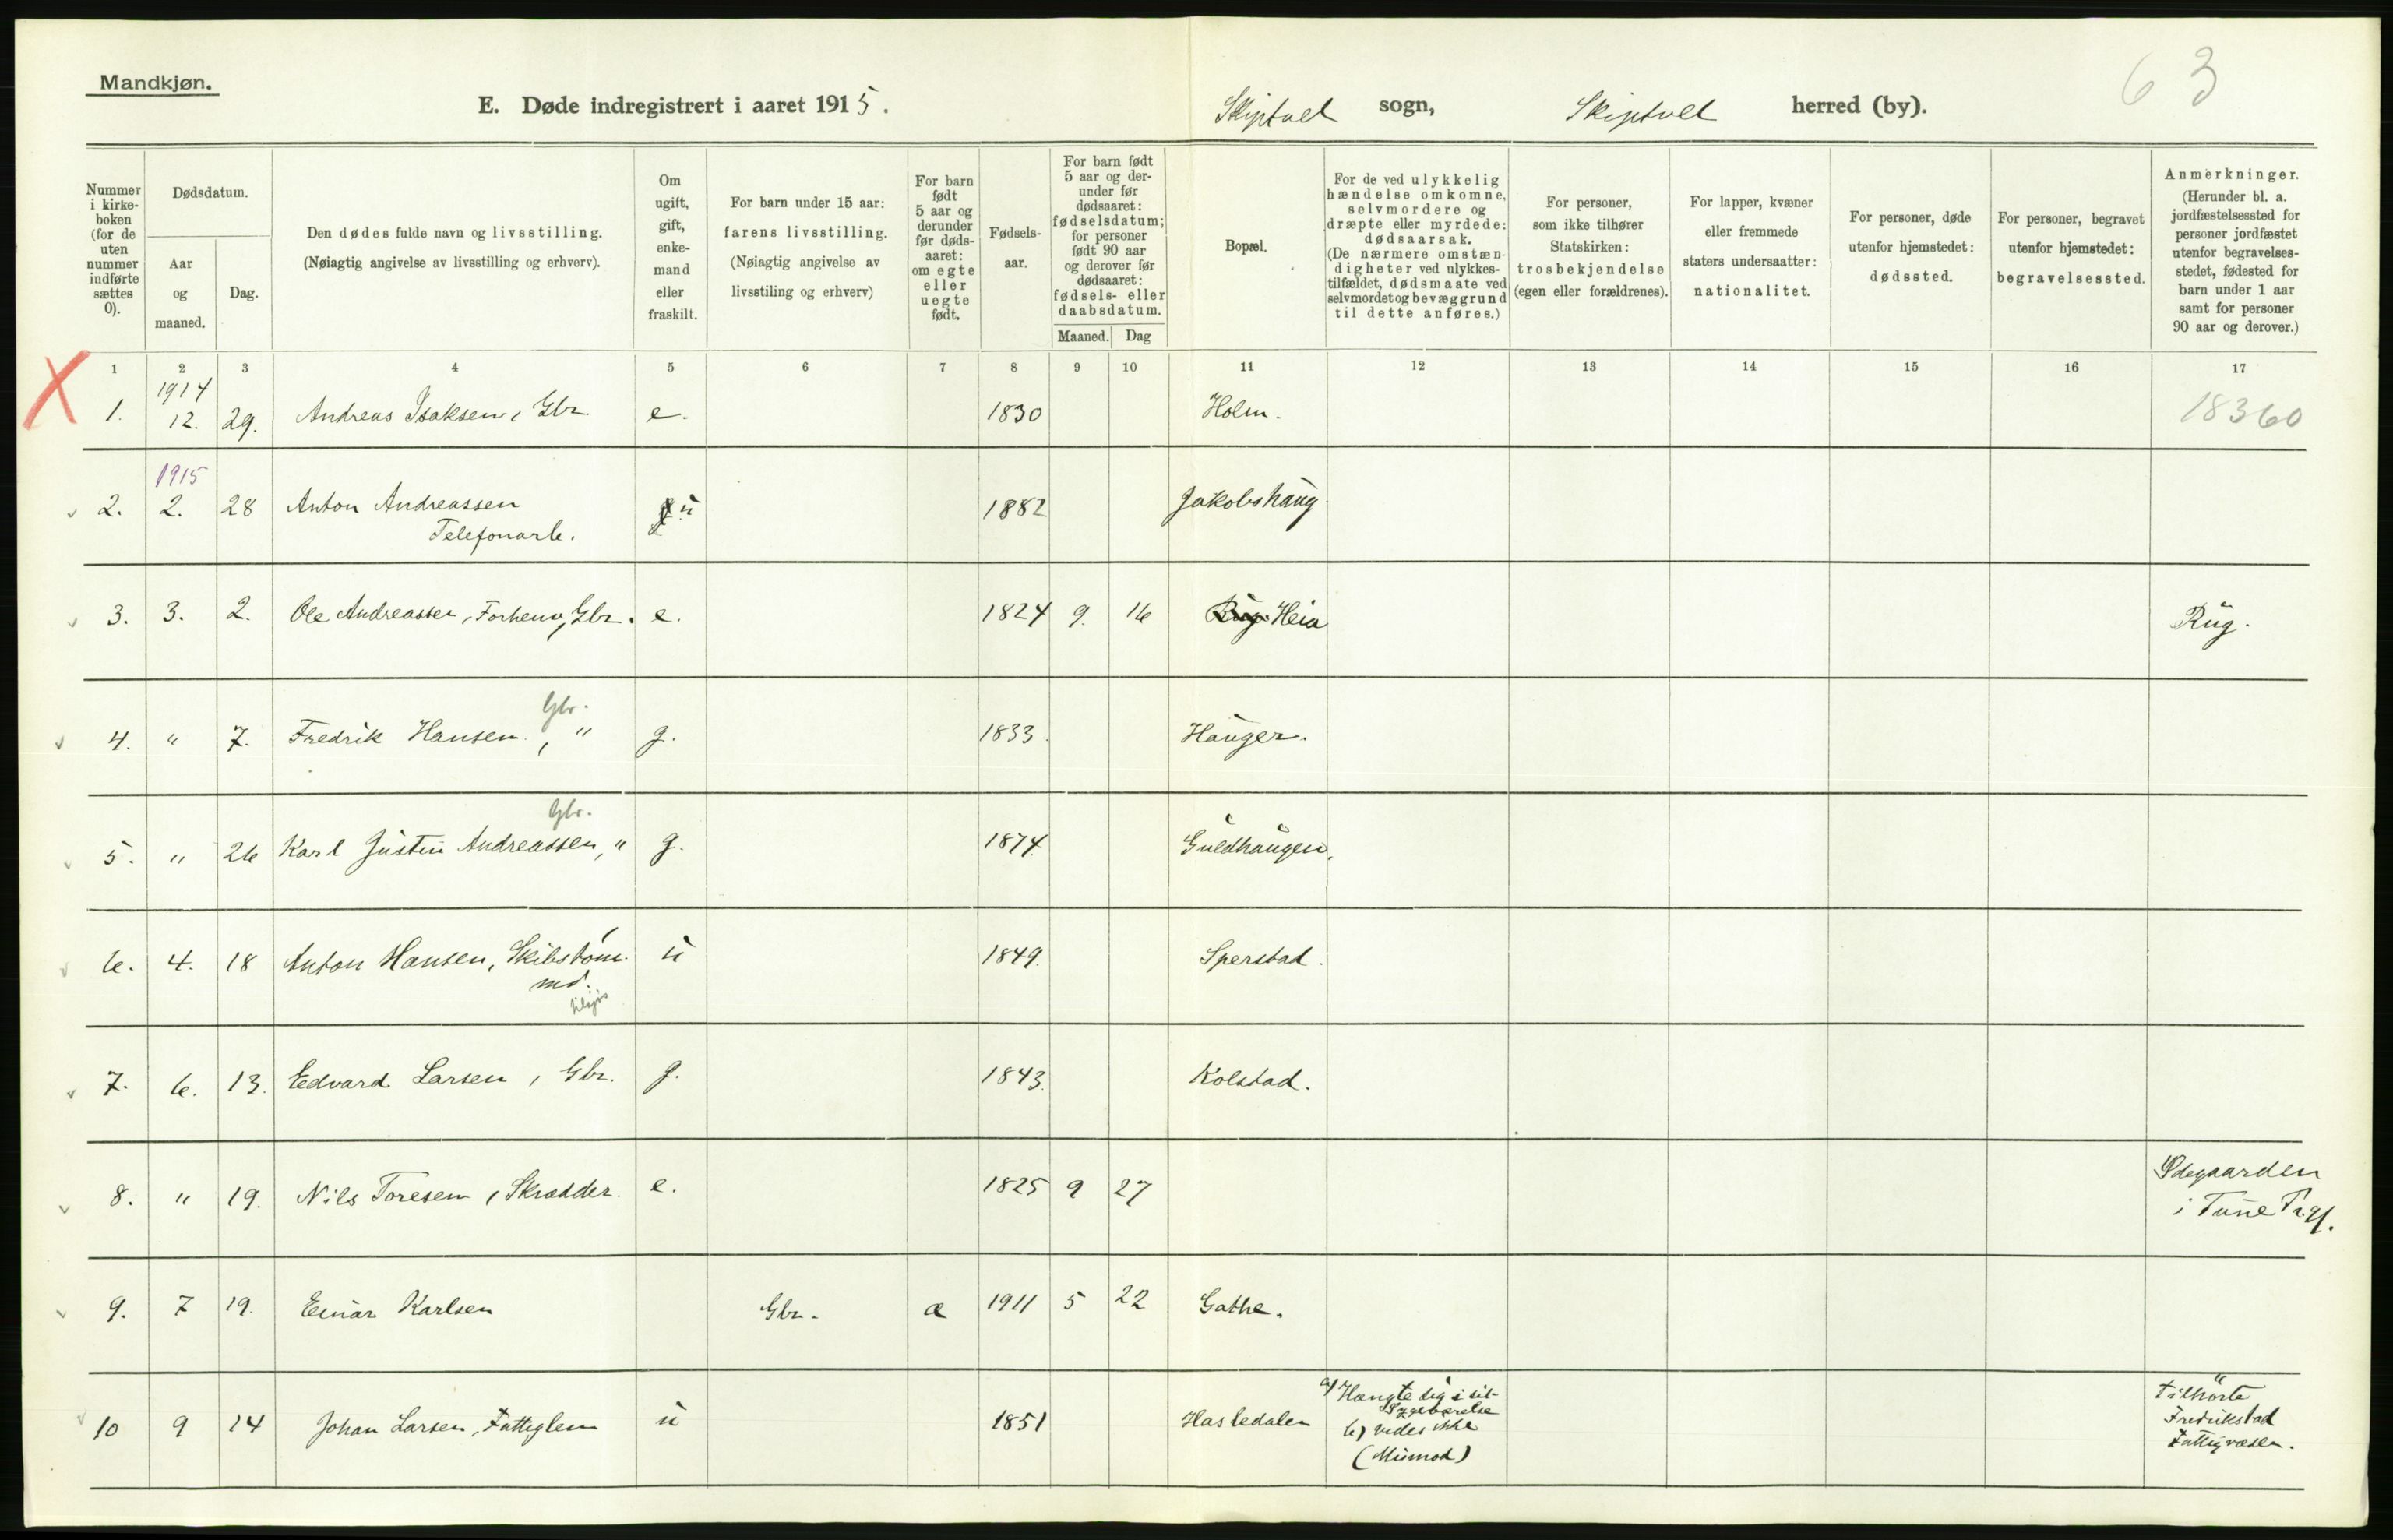 Mandkjøn.
E. Døde indregistrert i aaret 1915.
Skiptvet sogn, Skiptvet herred (by).
63
Nummer i kirke-boken (for de uten nummer indførte sættes 0).
Dødsdatum.
Aar og maaned.
Dag.
Den dødes fulde navn og livsstilling.
(Nøiagtig angivelse av livsstilling og erhverv).
Om ugift, gift, enke-mand eller fraskilt.
For barn under 15 aar: farens livsstilling.
(Nøiagtig angivelse av livsstiling og erhverv)
For barn født 5 aar og derunder før døds-aaret: om egte eller uegte født.
Fødsels-aar.
For barn født 5 aar og der-under før dødsaaret: fødselsdatum; for personer født 90 aar og derover før dødsaaret: fødsels- eller daabsdatum.
Maaned. Dag
Bopæl.
For de ved ulykkelig hændelse omkomne, selvmordere og dræpte eller myrdede: dødsaarsak. (De nærmere omstæn-digheter ved ulykkes-tilfældet, dødsmaate ved selvmordet og bevæggrund til dette anføres.)
For personer, som ikke tilhører Statskirken: trosbekjendelse (egen eller forældrenes).
For lapper, kvæner eller fremmede staters undersaatter: nationalitet.
For personer, døde utenfor hjemstedet: dødssted.
For personer, begravet utenfor hjemstedet: begravelsessted.
Anmerkninger.
(Herunder bl. a. jordfæstelsessted for personer jordfæstet utenfor begravelses-stedet, fødested for barn under 1 aar samt for personer 90 aar og derover.)
1 2 3 4 5 6 7 8 9 10 11 12 13 14 15 16 17
1914
X 1. 12. 29. Andreas Isaksen, Gbr. e. 1830 Holm. 18360
1915
2. 2. 28 Anton Andreassen ú 1882 Jakobshaug
Telefonarb.
3. 3. 2. Ole Andreassen, Forhenv. Gbr. e. 1824 9. 16 Rug. Heia Rug.
Gbr.
4. " 7. Fredrik Hansen, " g. 1833. Hauger.
Gbr.
5. " 26 Karl Justin Andreassen, " g. 1874. Guldhaugen.
6. 4. 18 Anton Hansen, Skibstöm- u 1849. Sperstad.
md.
7. 6. 13. Edvard Larsen, Gbr. g. 1843. Kolstad.
8. " 19. Nils Toresen, Skrædder. e. 1825 9 27 Ødegaarden
i Tune Prgj.
9. 7 19. Einar Karlsen Gbr. æ 1911 5 22 Gathe.
10 9 14 Johan Larsen, Fattiglem u 1851 Hasledalen
a) Hængte sig i sit
Sygeværelse
b) vides ikke
(Mismod)
Tilhörte
Fredrikstad
Fattigvæsen.